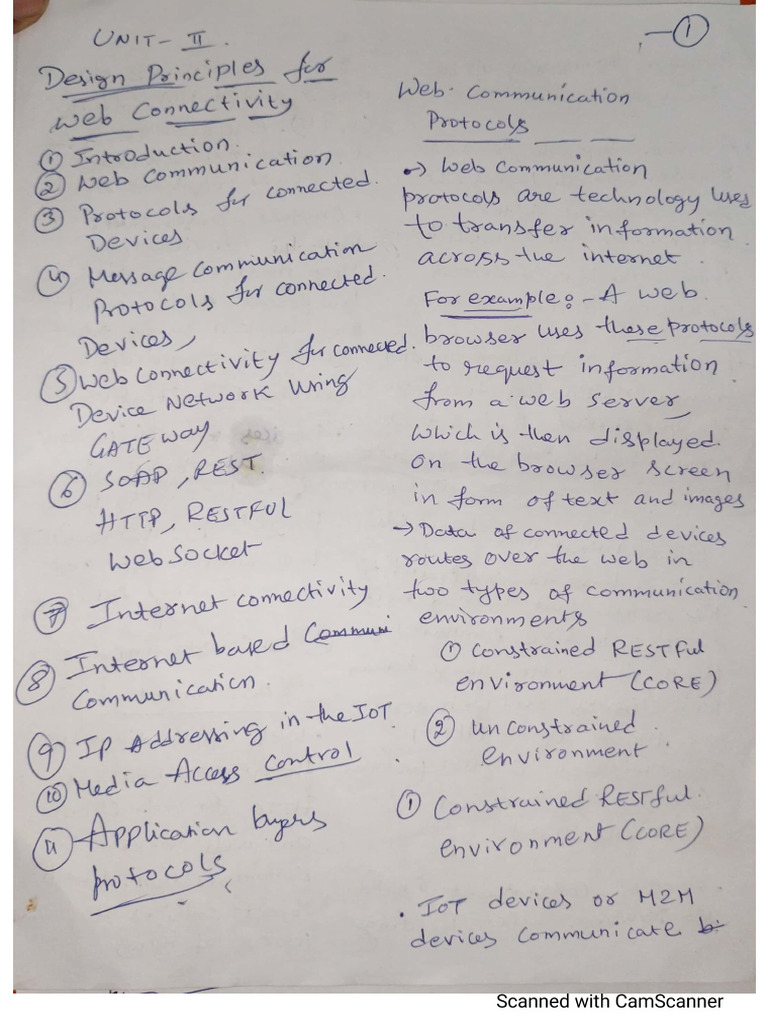 UNIT-II.
Design Principles for
Web Connectivity
① Introduction.
② Web Communication.
③ Protocols for connected.
Devices
④ Message Communication
Protocols for connected.
Devices,
⑤ Web Connectivity for connected.
Device Network Using
GATEWAY
⑥ SOAP, REST.
HTTP, RESTFUL
WebSocket
⑦ Internet connectivity
⑧ Internet based Communi
Communication.
⑨ IP Addressing in the IoT.
⑩ Media Access Control
⑪ Application layers
protocols
①
Web Communication
Protocols
→ Web Communication
protocols are technology uses
to transfer information
across the internet.
For example:- A web
browser uses these protocols
to request information
from a web server,
which is then displayed.
on the browser screen
in form of text and images
→ Data of connected devices
routes over the web in
two types of communication
environments
① Constrained RESTful
environment (CORE)
② unconstrained
environment.
① Constrained RESTful.
environment (CORE)
• IoT devices or M2M
devices communicate b
Scanned with CamScanner